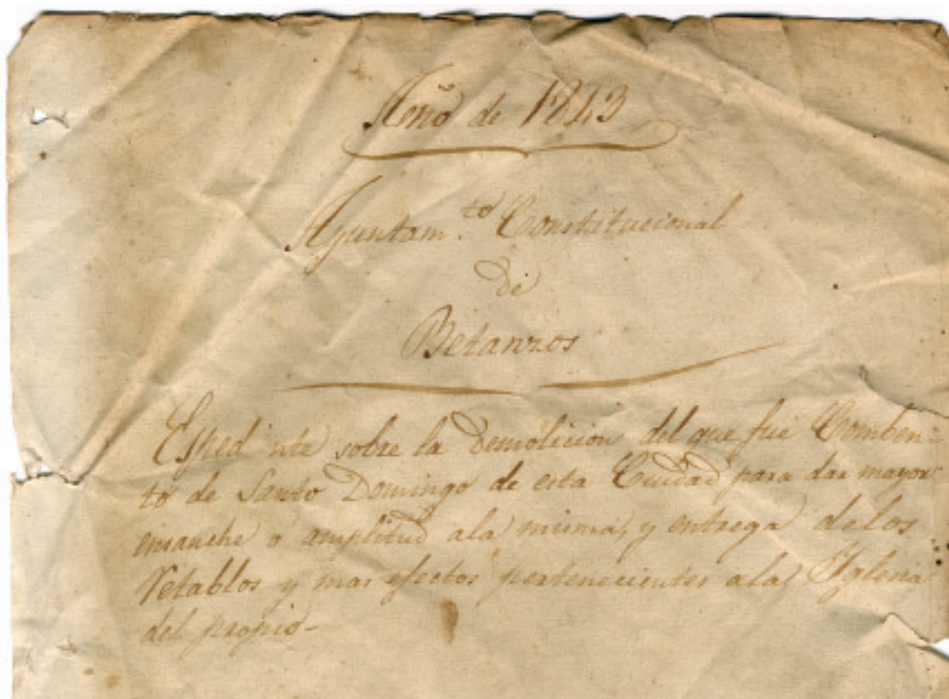 Año de 1843
Ayuntam.to Constitucional
de
Betanzos
Espediente sobre la Demolicion del que fué Comben-
to de Santo Domingo de esta Ciudad para dar mayor
ensanche ó amplitud ala misma, y entrega delos
Retablos y mas efectos pertenecientes ala Yglesia
del propio-